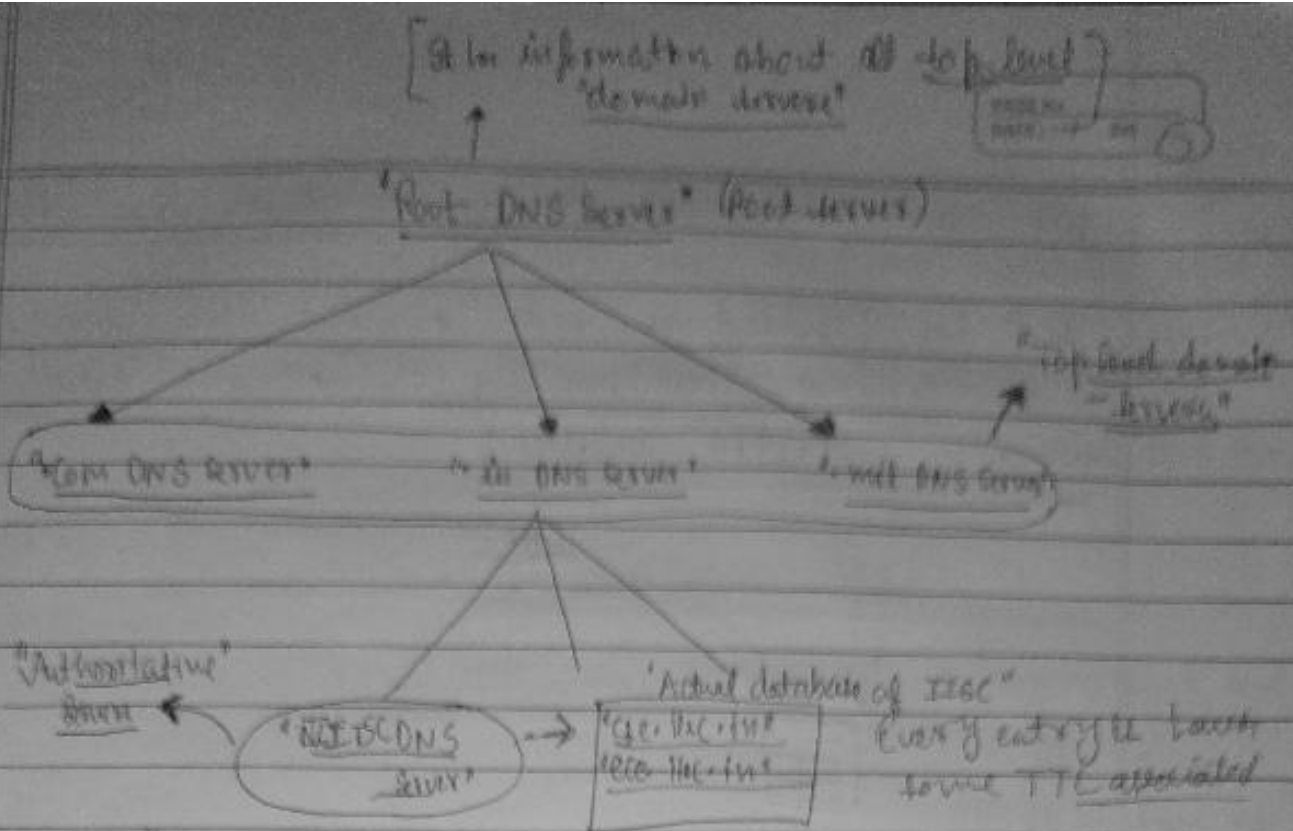 information about all top level
"domain servers"
"Root DNS Server" (Root server)
"Top level domain
servers"
"com DNS server"
"in DNS server"
DNS server"
"Authoritative"
"Actual database of IISC"
DNS
server"
"cse.iisc.in"
"ece.iisc.in"
Every entry
some TTL associated